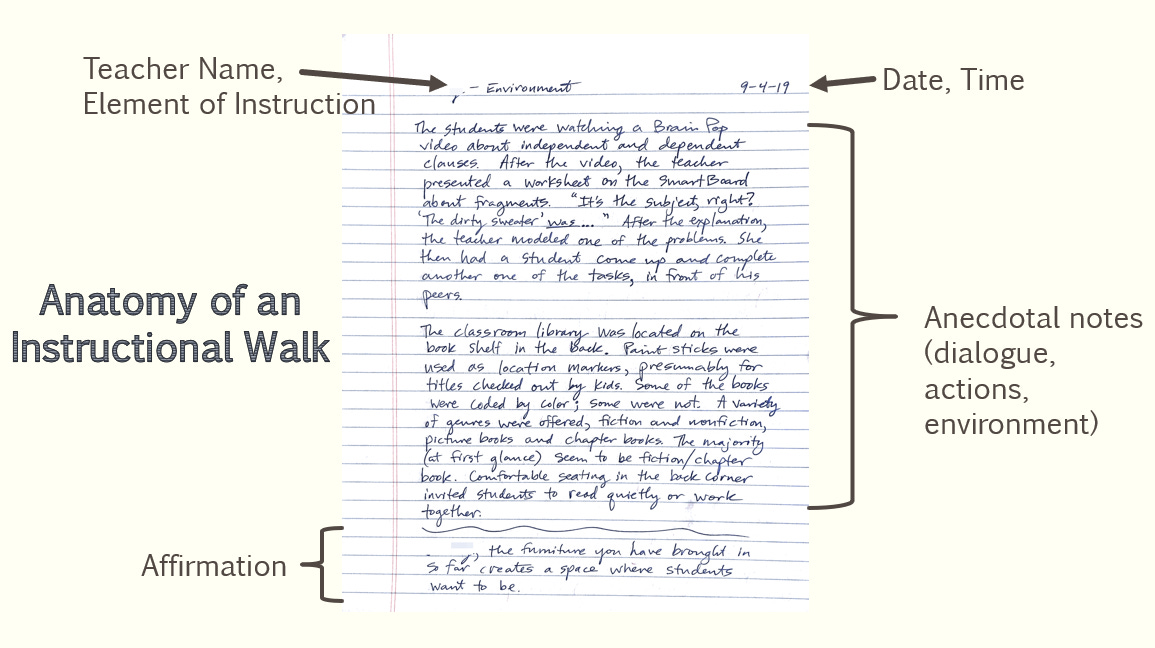 Teacher Name,
Element of Instruction
- Environment
9-4-19
Date, Time
The students were watching a Brain Pop
video about independent and dependent
clauses. After the video, the teacher
presented a worksheet on the SmartBoard
about fragments. "It's the subject, right?
'The dirty sweater' was... " After the explanation,
the teacher modeled one of the problems. She
then had a student come up and complete
another one of the tasks, in front of his
peers.
The classroom library was located on the
book shelf in the back. Paint sticks were
used as location markers, presumably for
titles checked out by kids. Some of the books
were coded by color; some were not. A variety
of genres were offered, fiction and nonfiction,
picture books and chapter books. The majority
(at first glance) seem to be fiction/chapter
book. Comfortable seating in the back corner
invited students to read quietly or work
together.
Anatomy of an
Instructional Walk
Anecdotal notes
(dialogue,
actions,
environment)
Affirmation
, the furniture you have brought in
so far creates a space where students
want to be.